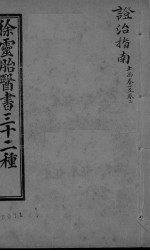 徐靈胎醫書三十二種
證治指南